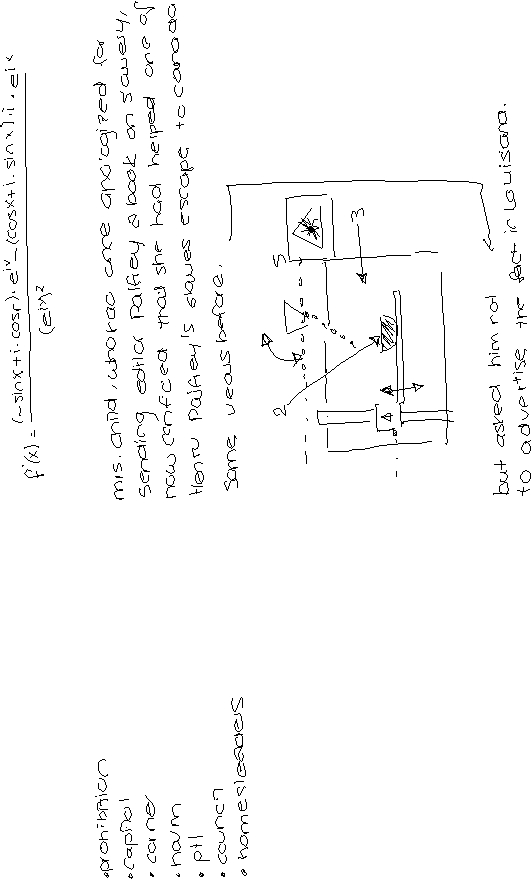 f'(x) = (-sinx+i·cosx)·e^ix-(cosx+i·sinx)·i·e^ix / (e^ix)^2
mrs. child, who had once apologized for
sending editor Palfrey a book on slavery,
now confided that she had helped one of
Henry Palfrey's slaves escape to canada
some years before.
5
3
2
but asked him not
to advertise the fact in Louisiana.
• prohibition
• capitol
• corner
• harm
• council
• homesteaders